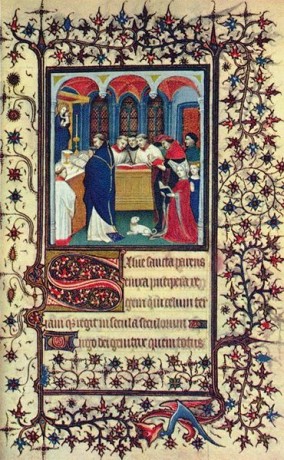 Salve sancta parens
enixa puerpera re
gem qui celum ter
ram qui regit in secula seculorum
Virgo dei genitrix quem totus